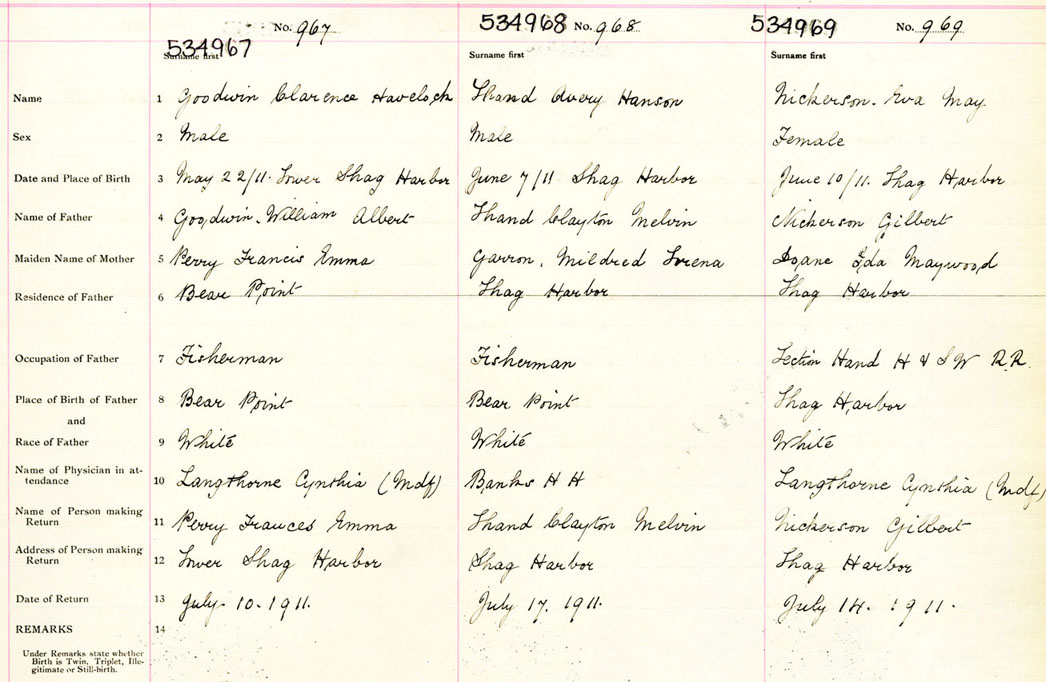 No. 967 534968 No. 968 534969 No. 969
534967
Surname first Surname first Surname first
Name 1 Goodwin Clarence Havelock Shand Avery Hanson Nickerson. Eva May.
Sex 2 Male Male Female
Date and Place of Birth 3 May 22/11. Lower Shag Harbor June 7/11 Shag Harbor June 10/11. Shag Harbor
Name of Father 4 Goodwin. William Albert Shand Clayton Melvin Nickerson Gilbert
Maiden Name of Mother 5 Perry Francis Emma Garron. Mildred Lorena Doane Ida Maywood
Residence of Father 6 Bear Point Shag Harbor Shag Harbor
Occupation of Father 7 Fisherman Fisherman Section Hand H & S W R.R.
Place of Birth of Father 8 Bear Point Bear Point Shag Harbor
and
Race of Father 9 White White White
Name of Physician in at-
tendance 10 Langthorne Cynthia (Mdf) Banks H H Langthorne Cynthia (Mdf)
Name of Person making
Return 11 Perry Frances Emma Shand Clayton Melvin Nickerson Gilbert
Address of Person making
Return 12 Lower Shag Harbor Shag Harbor Shag Harbor
Date of Return 13 July. 10. 1911. July 17. 1911. July 14. 1911.
REMARKS 14
Under Remarks state whether
Birth is Twin, Triplet, Ille-
gitimate or Still-birth.